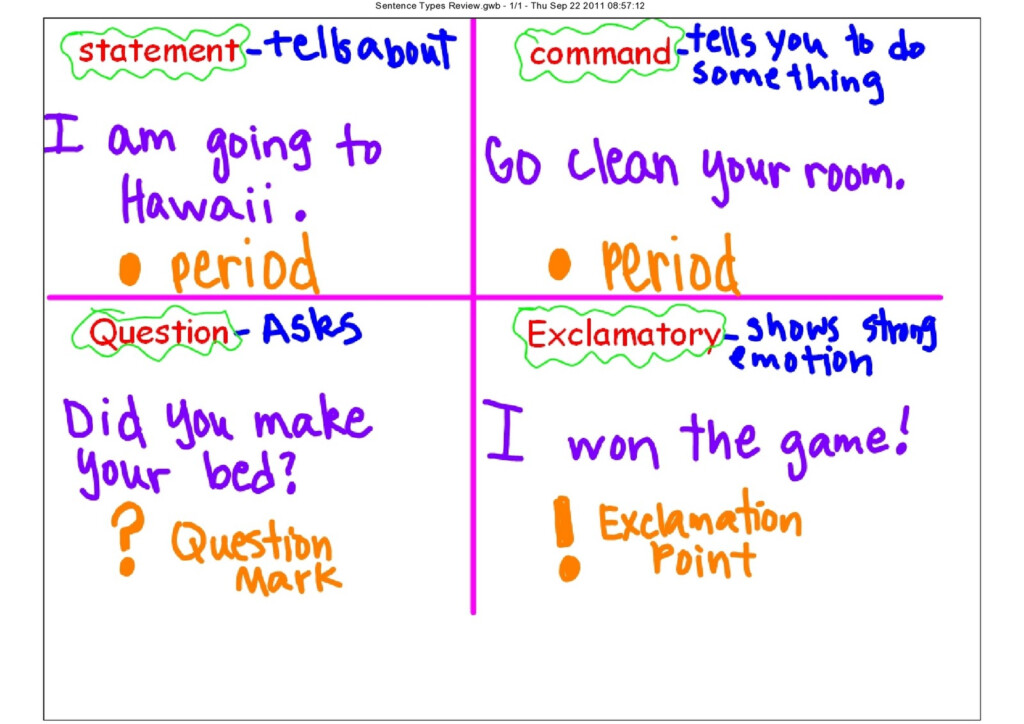 Sentence Types Review.gwb - 1/1 - Thu Sep 22 2011 08:57:12
statement - tells about
I am going to
Hawaii.
. period
command - tells you to do
something
Go clean your room.
. period
Question - Asks
Did you make
your bed?
? Question
Mark
Exclamatory - shows strong
emotion
I won the game!
! Exclamation
Point